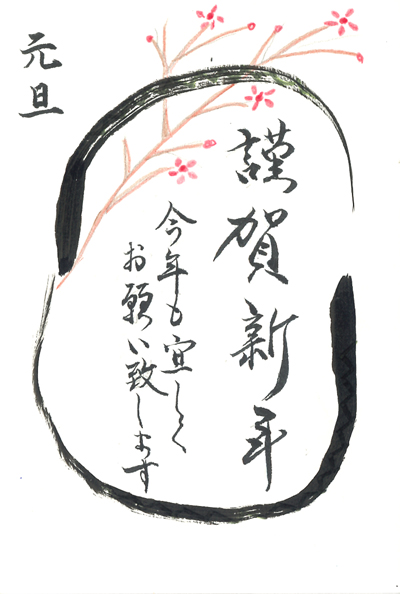 謹賀新年
今年も宜しく
お願い致します
元旦